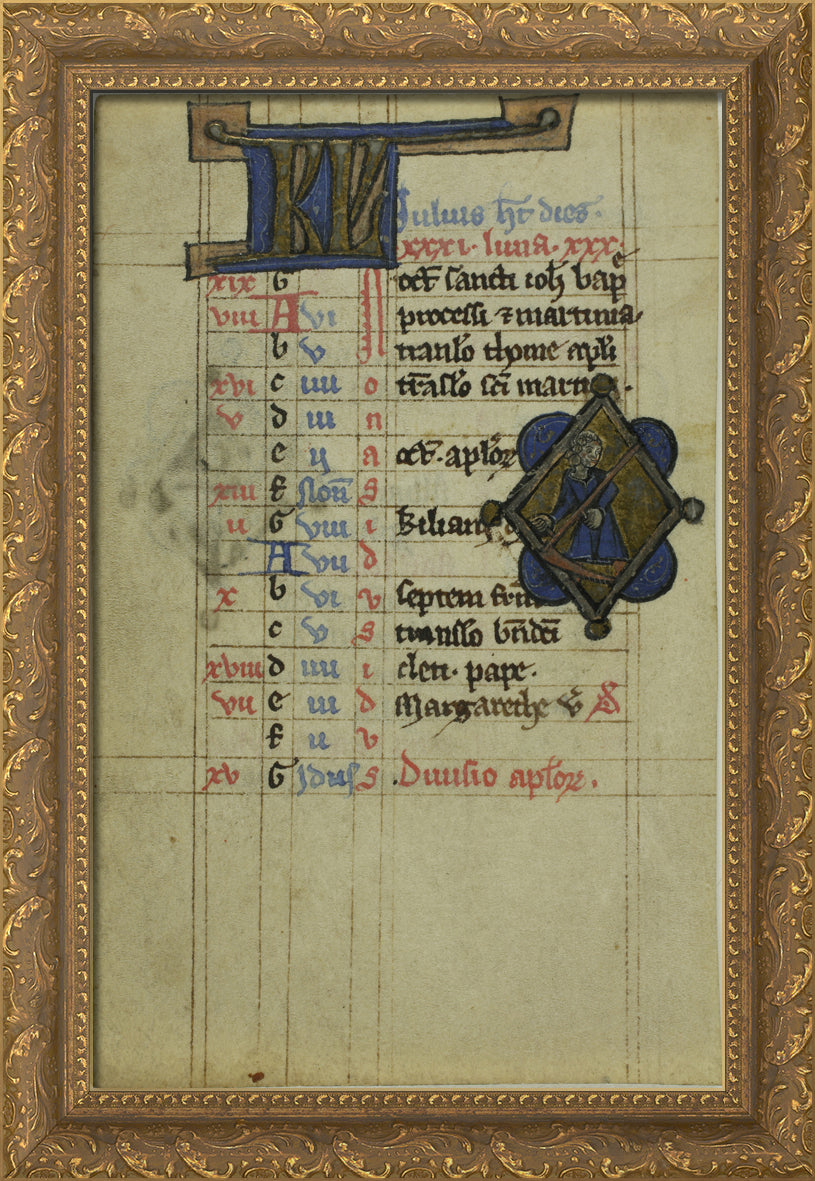 KL
Julius h̄t dies.
xxxi. luna. xxx.
xix G N oct̄ sancti ioh̄ bap̄
viii A vi processi ⁊ martinia
b v translo thome apl̄i
xvi c iiii o trāslo sc̄i martin.
v d iii n
e ij a oct̄. aplōꝝ
xiii f Non̄ s
ii G viii i kiliani
A vii d
x b vi v septem fr̄m
c v s translo bn̄dc̄i
xviii d iiii i cleti. pape.
vii e iii d Margarethe v̄
f ii v
xv G Jdus s Diuisio aplōꝝ.